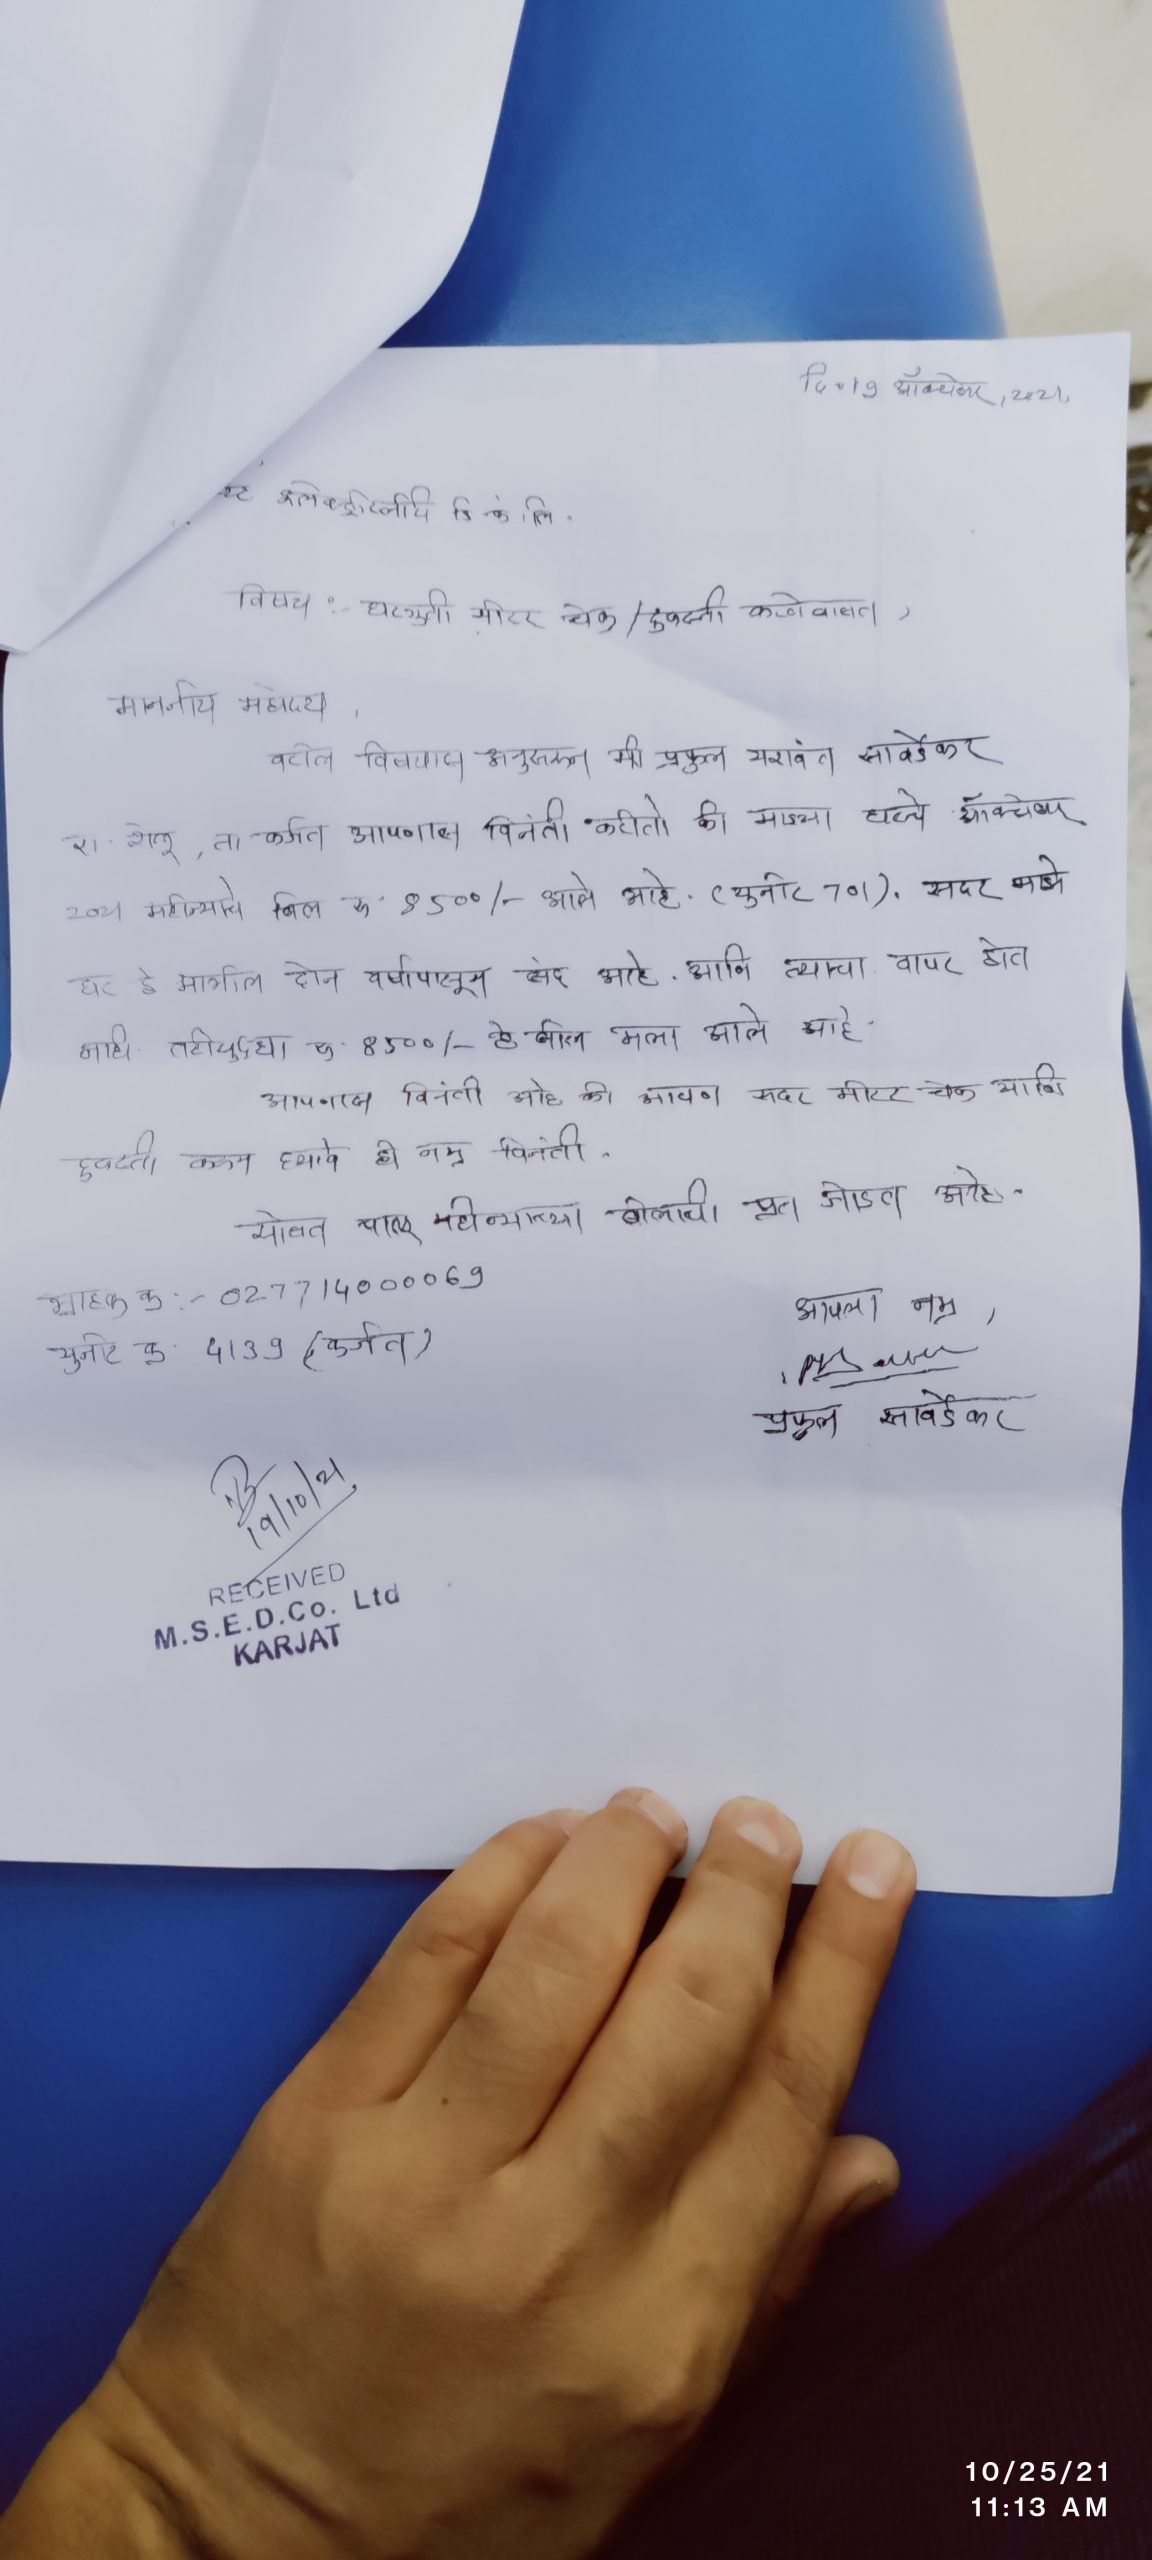 दि. 19 ऑक्टोबर, 2021.
स्टेट इलेक्ट्रीसिटी डि कं. लि.
विषय :- घरगुती मीटर चेक / दुरुस्ती करणेबाबत,
माननीय महोदय,
वरील विषयास अनुसरून मी प्रफुल यशवंत सावर्डेकर
रा. शेलू, ता कर्जत आपणास विनंती करीतो की माझ्या घरचे ऑक्टोबर
2021 महीन्याचे बिल रु. 8500/- आले आहे. (युनीट 701). सदर माझे
घर हे मागील दोन वर्षापासून बंद आहे. आणि त्याचा वापर होत
नाही. तरीसुद्धा रु. 8500/- हे बील मला आले आहे.
आपणास विनंती आहे की आपण सदर मीटर चेक आणि
दुरुस्ती करून द्यावे ही नम्र विनंती.
सोबत चालू महीन्याच्या बीलाची प्रत जोडत आहे.
ग्राहक क्र :- 027714000069
युनीट क्र. 4139 (कर्जत)
आपला नम्र,
प्रफुल सावर्डेकर
19/10/21
RECEIVED
M.S.E.D.Co. Ltd
KARJAT
10/25/21
11:13 AM